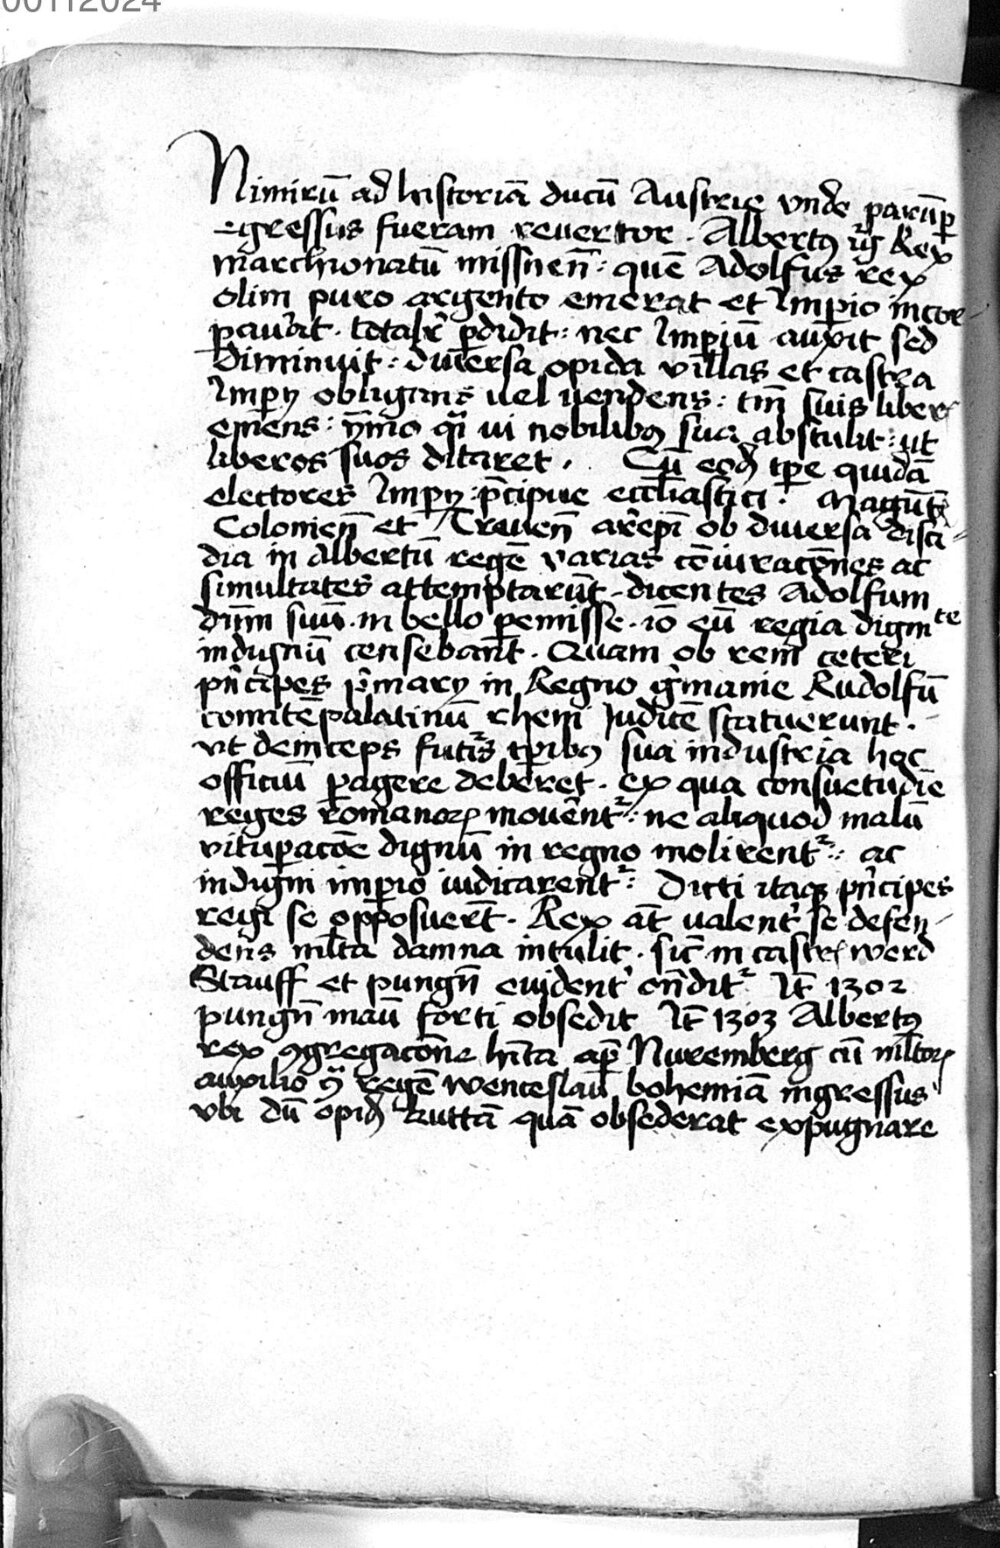 00112024
Nimirū ad historiā ducū Austrie vnde parūp̄
egressus fueram revertor. Albertꝰ igr̄ Rex
marchionatū missnen̄: quē Adolfus rex
olim puro argento emerat et Imperio incor-
pauit. totalr̄ p̄didit: nec Imp̄iū auxit sed
Diminuit: diuersa opida villas et castra
Imp̄ij obligans uel uendens: tm̄ suis liber̄
emēns: ȳmo qͣ ui nobilibꝰ sua abstulit: ut
liberos suos ditaret. Cū eod̄ tp̄e quidā
electores Imp̄ij: p̄cipue eccl̄iastici. Magūt̄
Colonien̄ et Treuen̄ arēpi ob diuersa disci-
dia in Albertū regē varias cōiurac̄ones ac
simultates attemptarūt. dicentes Adolfum
dn̄m suū in bello p̄emisse. iō eū regia dignite
indignū censebant. Quam ob rem ceteri
pn̄cipes p̄marij in Regno ḡmanie Rudolfū
comitē palatinū rheni Judicē statuerunt.
vt deinceps futur̄ tp̄ibꝰ sua industria hoc
officiū p̄agere deberet. ex qua consuetudīe
reges romanoꝝ mouēntr̄: ne aliquod malū
vitup̄acōe dignū in regno molirentr̄: ac
indigni imp̄io iudicarentr̄: Dicti itaqꝫ pn̄cipes
regi se opposuer̄t. Rex at̄ ualentr̄ se defen-
dens ml̄ta damna intulit. sic̄ in castr̄ werd
Stauff et pungn̄ euidentr̄ on̄ditr̄ It̄ 1302
pungn̄ manū forti obsedit It̄ 1303 Albertꝰ
rex ꝯgregacōne hīta ap̄ Nuremberg cū ml̄toꝝ
auxilio ꝯͣ regē wenceslaū bohemiā ingressus
vbi dū opid̄ kuttā quā obsederat expugnare